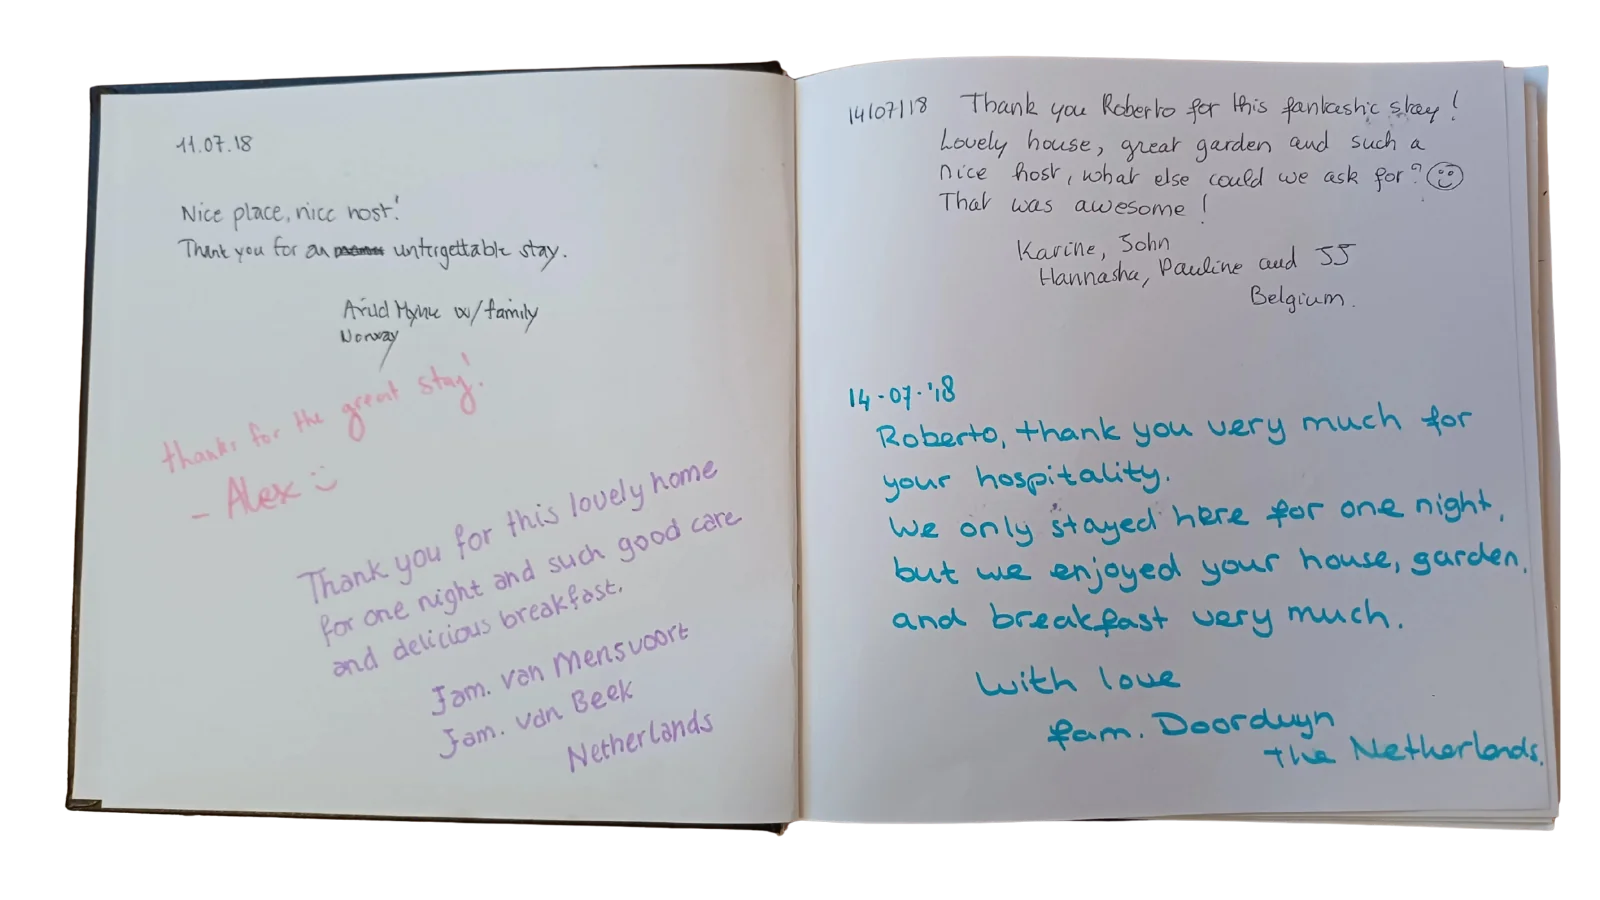 11.07.18
Nice place, nice host!
Thank you for an unforgettable stay.
w/family
Norway
thanks for the great stay!
- Alex :)
Thank you for this lovely home
for one night and such good care
and delicious breakfast.
Fam. van Mensvoort
Fam. van Beek
Netherlands
14/07/18 Thank you Roberto for this fantastic stay!
Lovely house, great garden and such a
nice host, what else could we ask for? ☺
That was awesome!
Karine, John
Hannasha, Pauline and JJ
Belgium.
14-07-'18
Roberto, thank you very much for
your hospitality.
We only stayed here for one night,
but we enjoyed your house, garden,
and breakfast very much.
With love
fam. Doorduyn
The Netherlands.